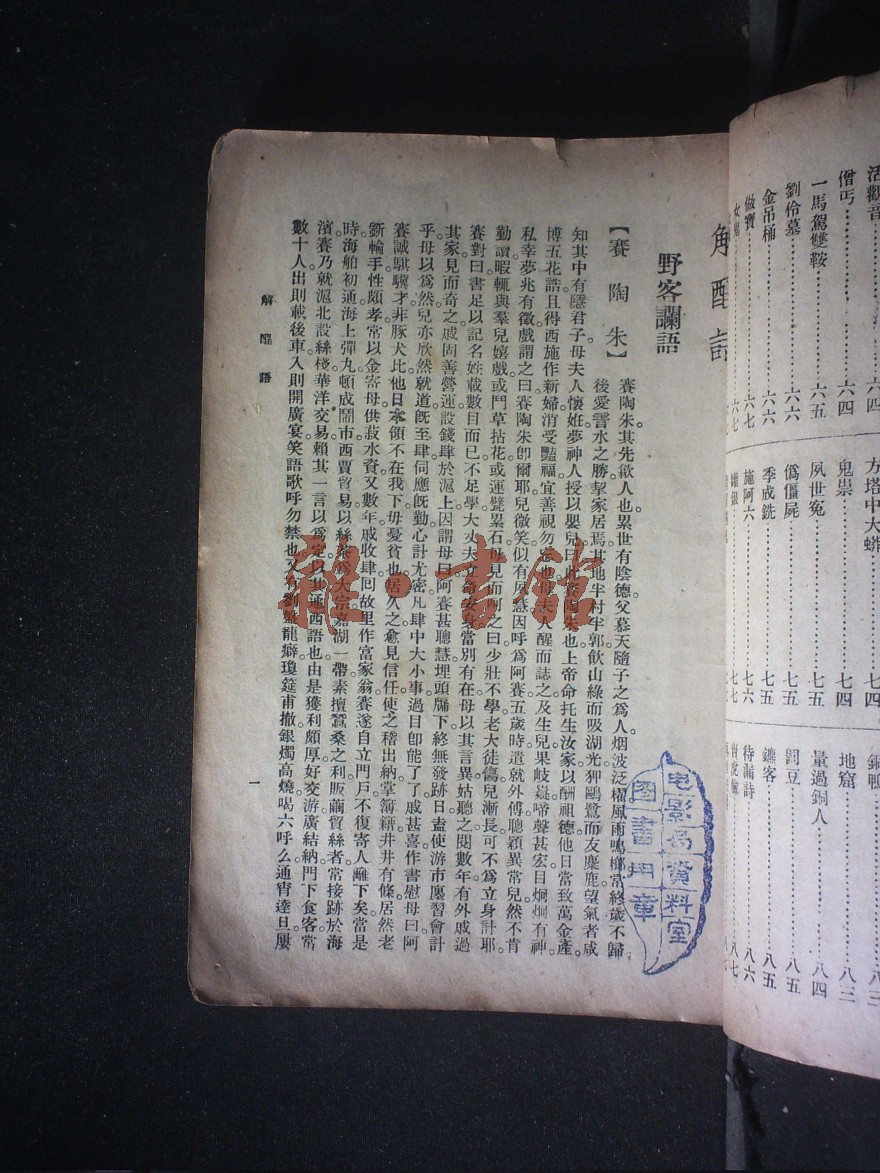 活觀音……六四
僧丐……六四
一馬駕雙鞍……六五
劉伶墓……六六
金吊桶……六六
做寶……六七
方塔中大蜡……七四
鬼祟……七四
夙世寃……七五
僞僵屍……七五
季成銑……七五
施阿六……七六
銀鴨……八三
地窟……八三
量過銅人……八四
罰豆……八五
鑣客……八五
待漏詩……八六
解酲語
野客讕語
【賽陶朱】
賽陶朱。其先歙人也。累世有陰德。父慕天隨子之爲人。烟波泛櫂。風雨鳴榔。常終歲不歸。
後愛雪水之勝。挈家居焉。其地半村半郭。飲山綠而吸湖光。狎鷗鷺而友麋鹿。望氣者咸
知其中有隱君子。母夫人懷姙。夢神人授以嬰兒曰。此賽陶朱也。上帝命托生汝家。以酬祖德。他日當致萬金產。
博五花誥。且得西施作新婦。消受豔福。宜善視勿怠也。母夫人醒而誌之。及生。兒果岐嶷。啼聲甚宏。目炯炯有神。
私幸夢兆有徵。戲謂之曰。賽陶朱卽爾耶。兒微笑。似有夙慧。因呼爲阿賽。五歲時。遣就外傅。聰穎異常兒。然不肯
勤讀。暇輒與羣兒嬉戲。或鬥草拈花。或運甓累石。母見而呵之曰。少壯不學。老大徒傷。兒漸長。可不爲立身計耶。
賽對曰。書足以記名姓。載數目而已。不足學。大丈夫立命安身。當別有在。母以其言異。姑聽之。閱數年。有外戚過
其家。見而奇之。戚固善營運。設錢肆於滬上。因謂母曰。阿賽甚聰慧。埋頭牖下。終無發跡日。盍使游市廛。習會計
乎。母以爲然。兒亦欣然就道。旣至肆。伺應旣勤。心計尤密。凡肆中大小事。過目卽能了了。戚甚喜。作書慰母曰。阿
賽誠騏驥才。非豚犬比。他日本領不在我下。毋憂貧也。居久之。愈見信任。使之稽出納。掌簿籍。井井有條。居然老
斵輪手。性頗孝。常以金寄母。供菽水資。又數年。戚收肆回故里。作富家翁。賽遂自立門戶。不復寄人籬下矣。當是
時。海舶初通。海上彈丸。頓成鬧市。西賈貿易。以絲茶爲大宗。嘉湖一帶。素擅蠶桑之利。販繭貿絲者。常接跡於海
濱。賽乃就滬北設絲棧。華洋交易。賴其一言以爲定。以其通西語也。由是獲利頗厚。好交游。廣結納。門下食客常
數十人。出則載後車。入則開廣宴。笑語歌呼勿禁也。又有劉盤龍癖。瓊筵甫撤。銀燭高燒。喝六呼么。通宵達旦。屢
解酲語
一
电影局資料室
圖書用章
雜·書館